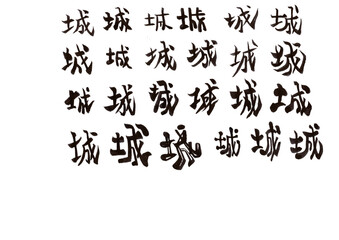 城城城城城城
城城城城城城
城城城城城城
城城城城城城